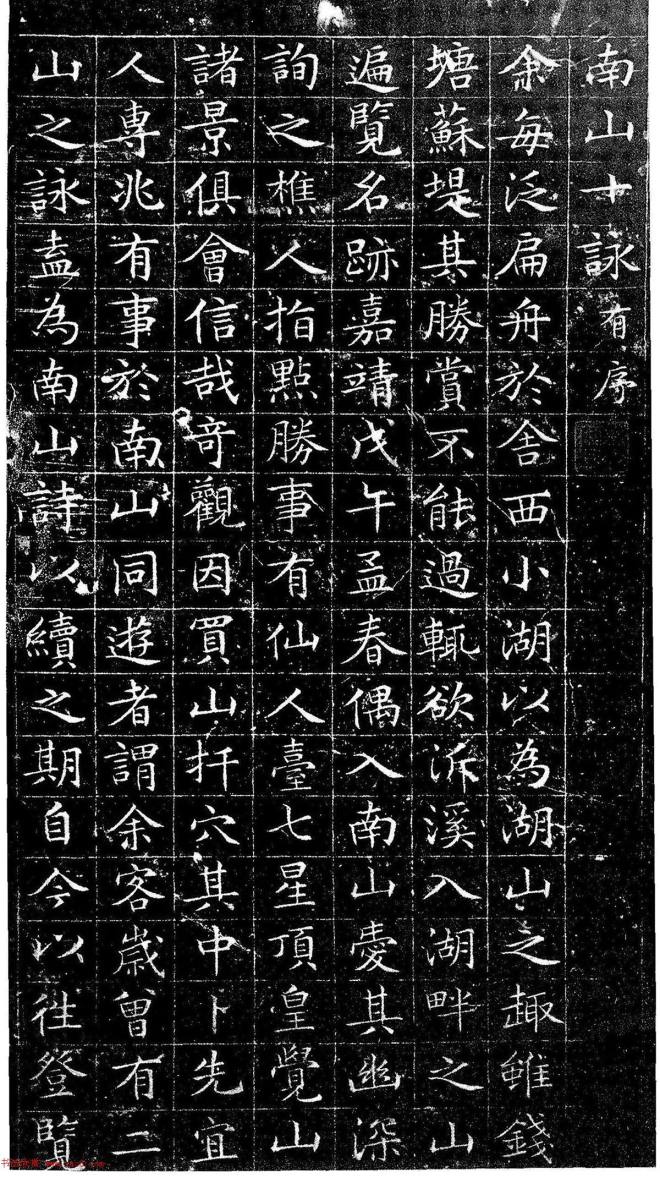 南山十詠有序
余每泛扁舟於舍西小湖以為湖山之趣雖錢
塘蘇堤其勝賞不能過輒欲泝溪入湖畔之山
遍覽名跡嘉靖戊午孟春偶入南山愛其幽深
詢之樵人指點勝事有仙人臺七星頂皇覺山
諸景俱會信哉奇觀因買山扦穴其中卜先宜
人專兆有事於南山同遊者謂余客歲曾有二
山之詠盍為南山詩以續之期自今以往登覽